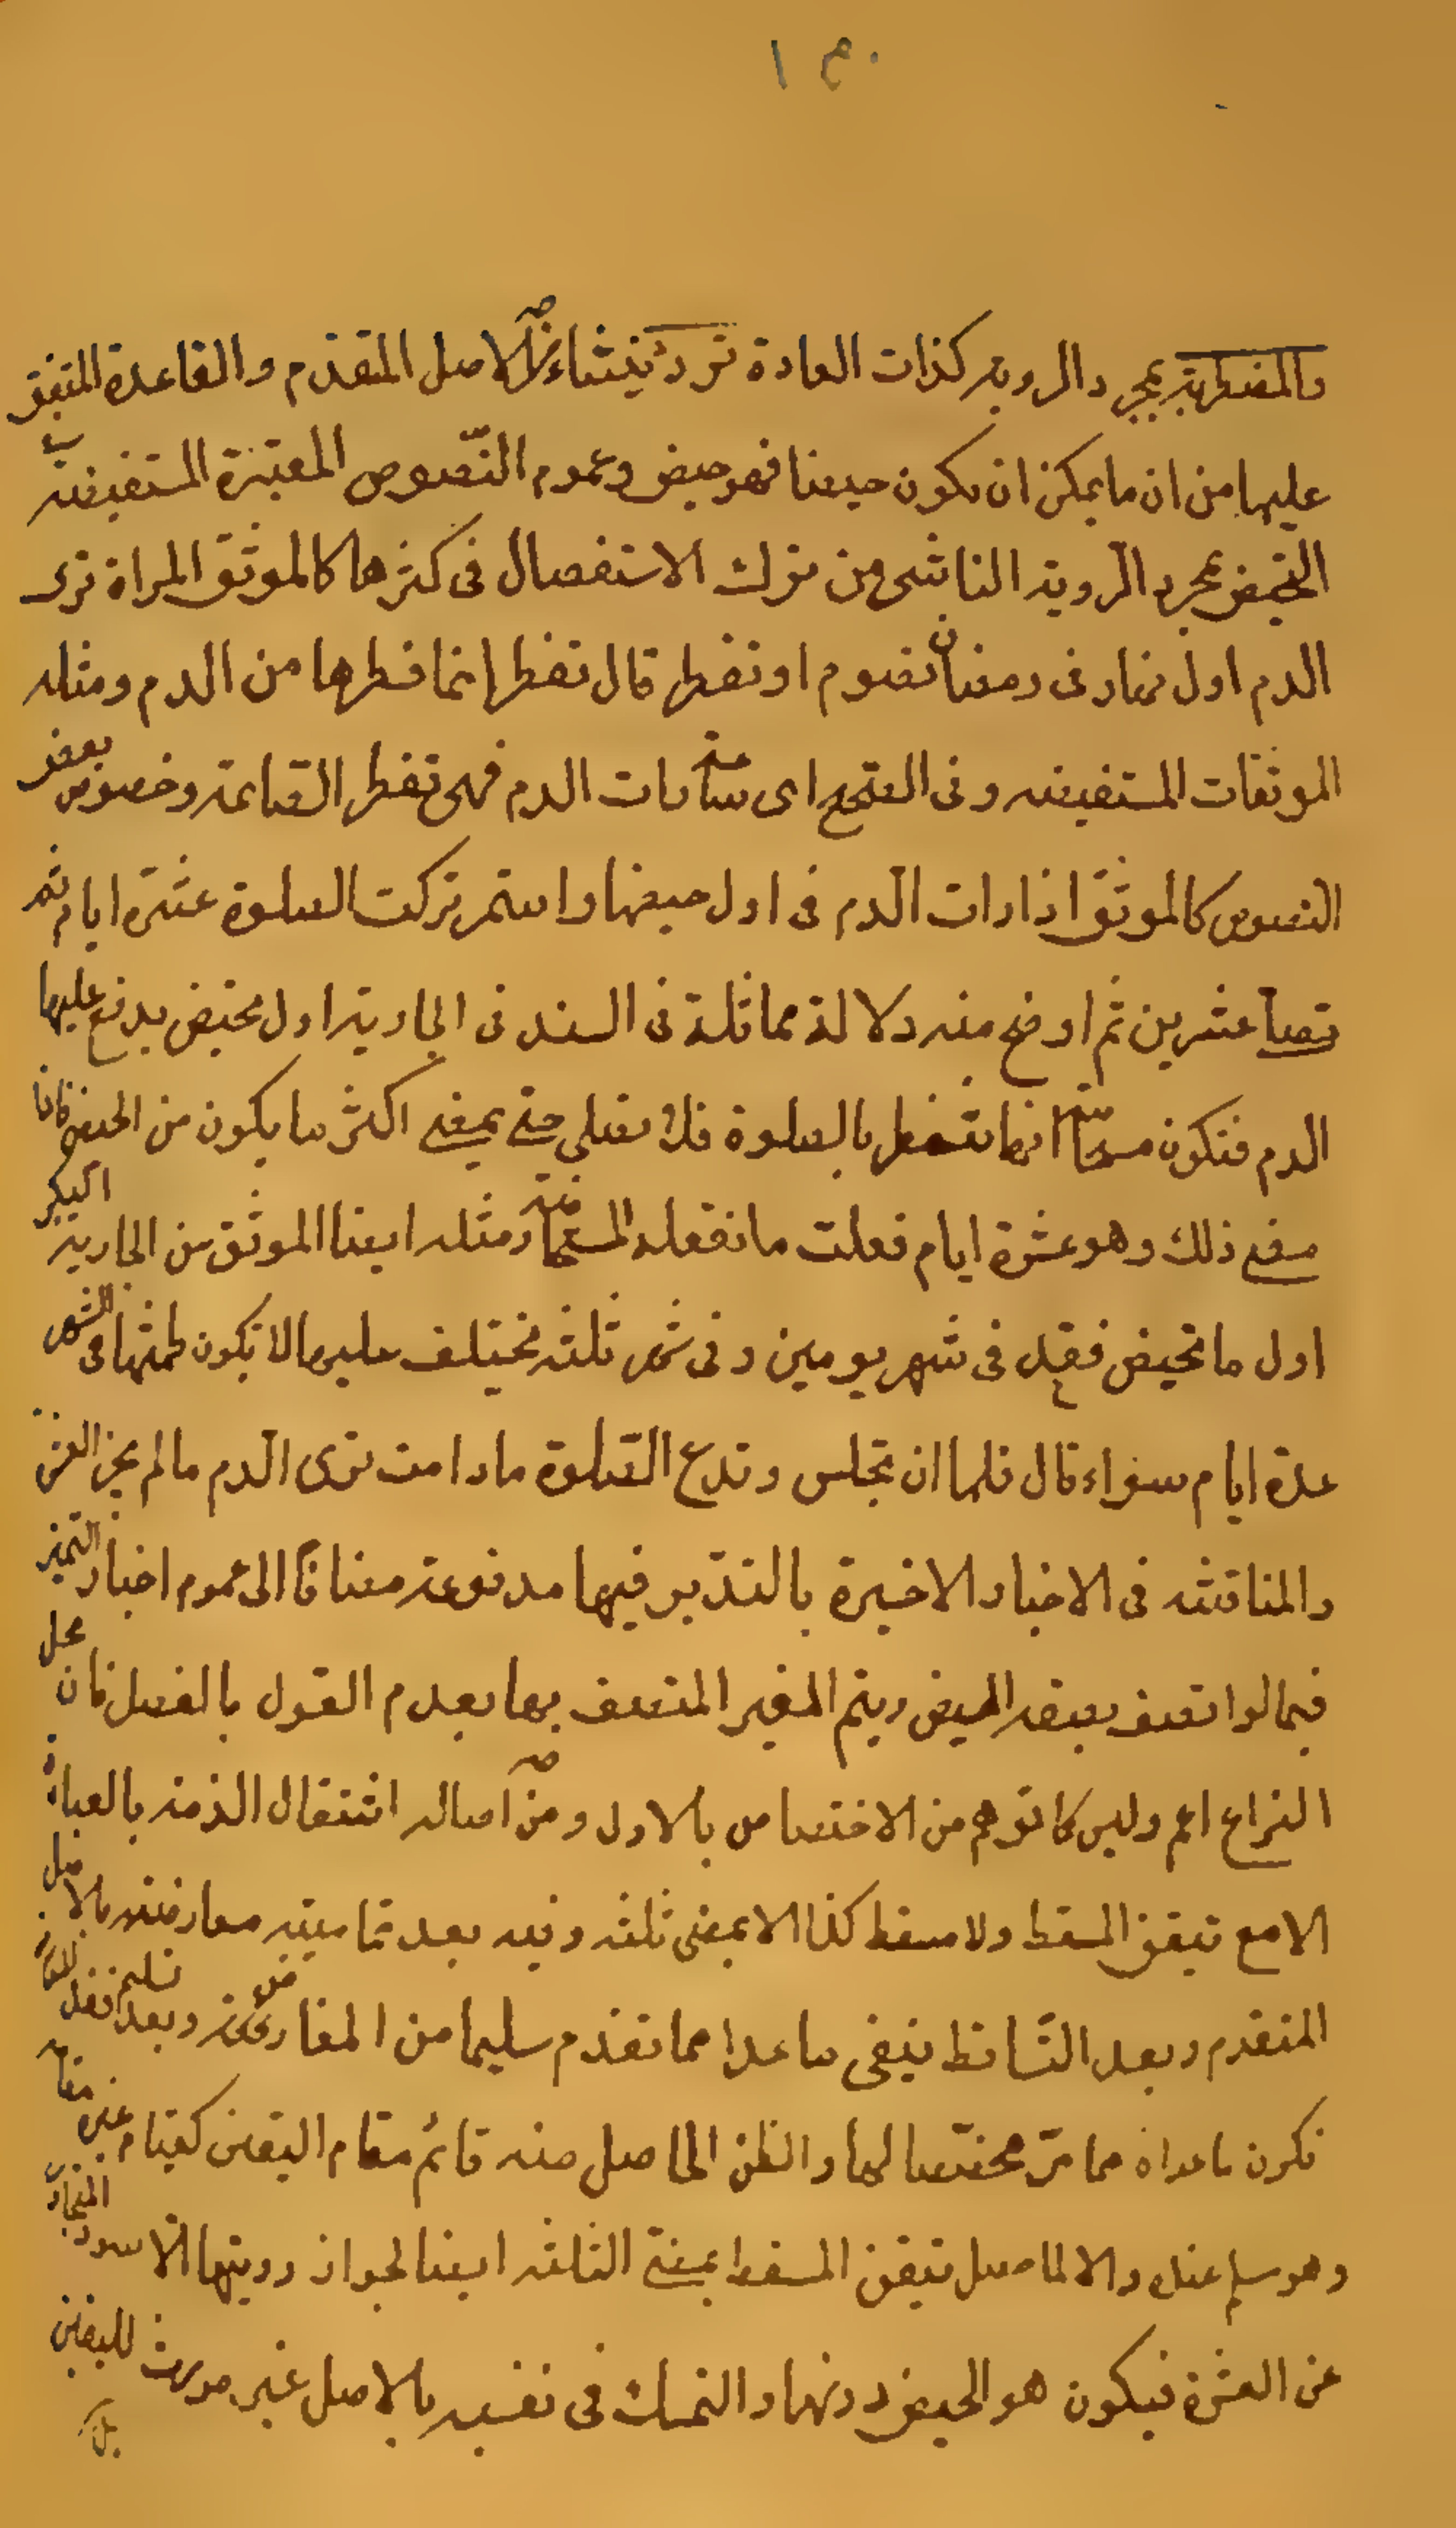 ١٠م
والمضطربة بمجرد الروية كذات العادة تردد ينشاء من الاصل المتقدم والقاعدة المتفق
عليها من ان ما يمكن ان يكون حيضا فهو حيض وعموم النصوص المعتبرة المستفيضة ب
التحيض بمجرد الروية الناشى من ترك الاستفصال فى كثرها كالموثق المراة ترى
الدم اول نهار فى رمضان تصوم او تفطر قال تفطر انما فطرها من الدم ومثله
الموثقات المستفيضه وفى الصحيح اى ساعة رات الدم فهى تفطر الصائمة وخصوص بعض
النصوص كالموثق اذا رات الدم فى اول حيضها واستمر تركت الصلوة عشرة ايام ثم
تصلى عشرين ثم اوضح منه دلالة مماثلة فى السند فى الجارية اول تحيض يدفع عليها
الدم فتكون مستحاضة انها تنتظر بالصلوة فلا تصلى حتى يمضى اكثر ما يكون من الحيض فاذا
مضى ذلك وهو عشرة ايام فعلت ما تفعله المستحاضة ومثله ايضا الموثق من الجارية البكر
اول ما تحيض فتقعد فى شهر يومين وفى شهر ثلثه يختلف عليها لا يكون طمثها فى الشهر
عدة ايام سواء قال فلها ان تجلس وتدع الصلوة ما دامت ترى الدم ما لم يجز العشرة
والمناقشه فى الاخبار الاخيرة بالتدبر فيها مدفوعة مضافا الى عموم اخبار التميز
فيما لو اتصف بصفة الحيض ويتم المغير المتصف بها بعدم القول بالفصل فان محل
النزاع اعم وليس كما توهم من الاختصاص بالاول ومن اصالة اشتغال الذمه بالعبادة
الا مع تيقن المسقط ولا مسقط كذا الا بمضى ثلثه وفيه بعد تماميته معارضته بالاصل
المتقدم وبعد التساقط يبقى ما عدا مما تقدم سليما من المعارض وبعد تسليم فقد
فكون ما عداه مما مر مخصصا لها والظن الحاصل منه قائم مقام اليقين كقيام غيره مقامه
وهو سلم عند والا لما حصل تيقن المسقط بمضى الثلثه ايضا لجواز رويتها الاسود المتجاوز
عن العشرة فيكون هو الحيض دونها والتمسك فى نفسه بالاصل غير مورث لليقين
بل